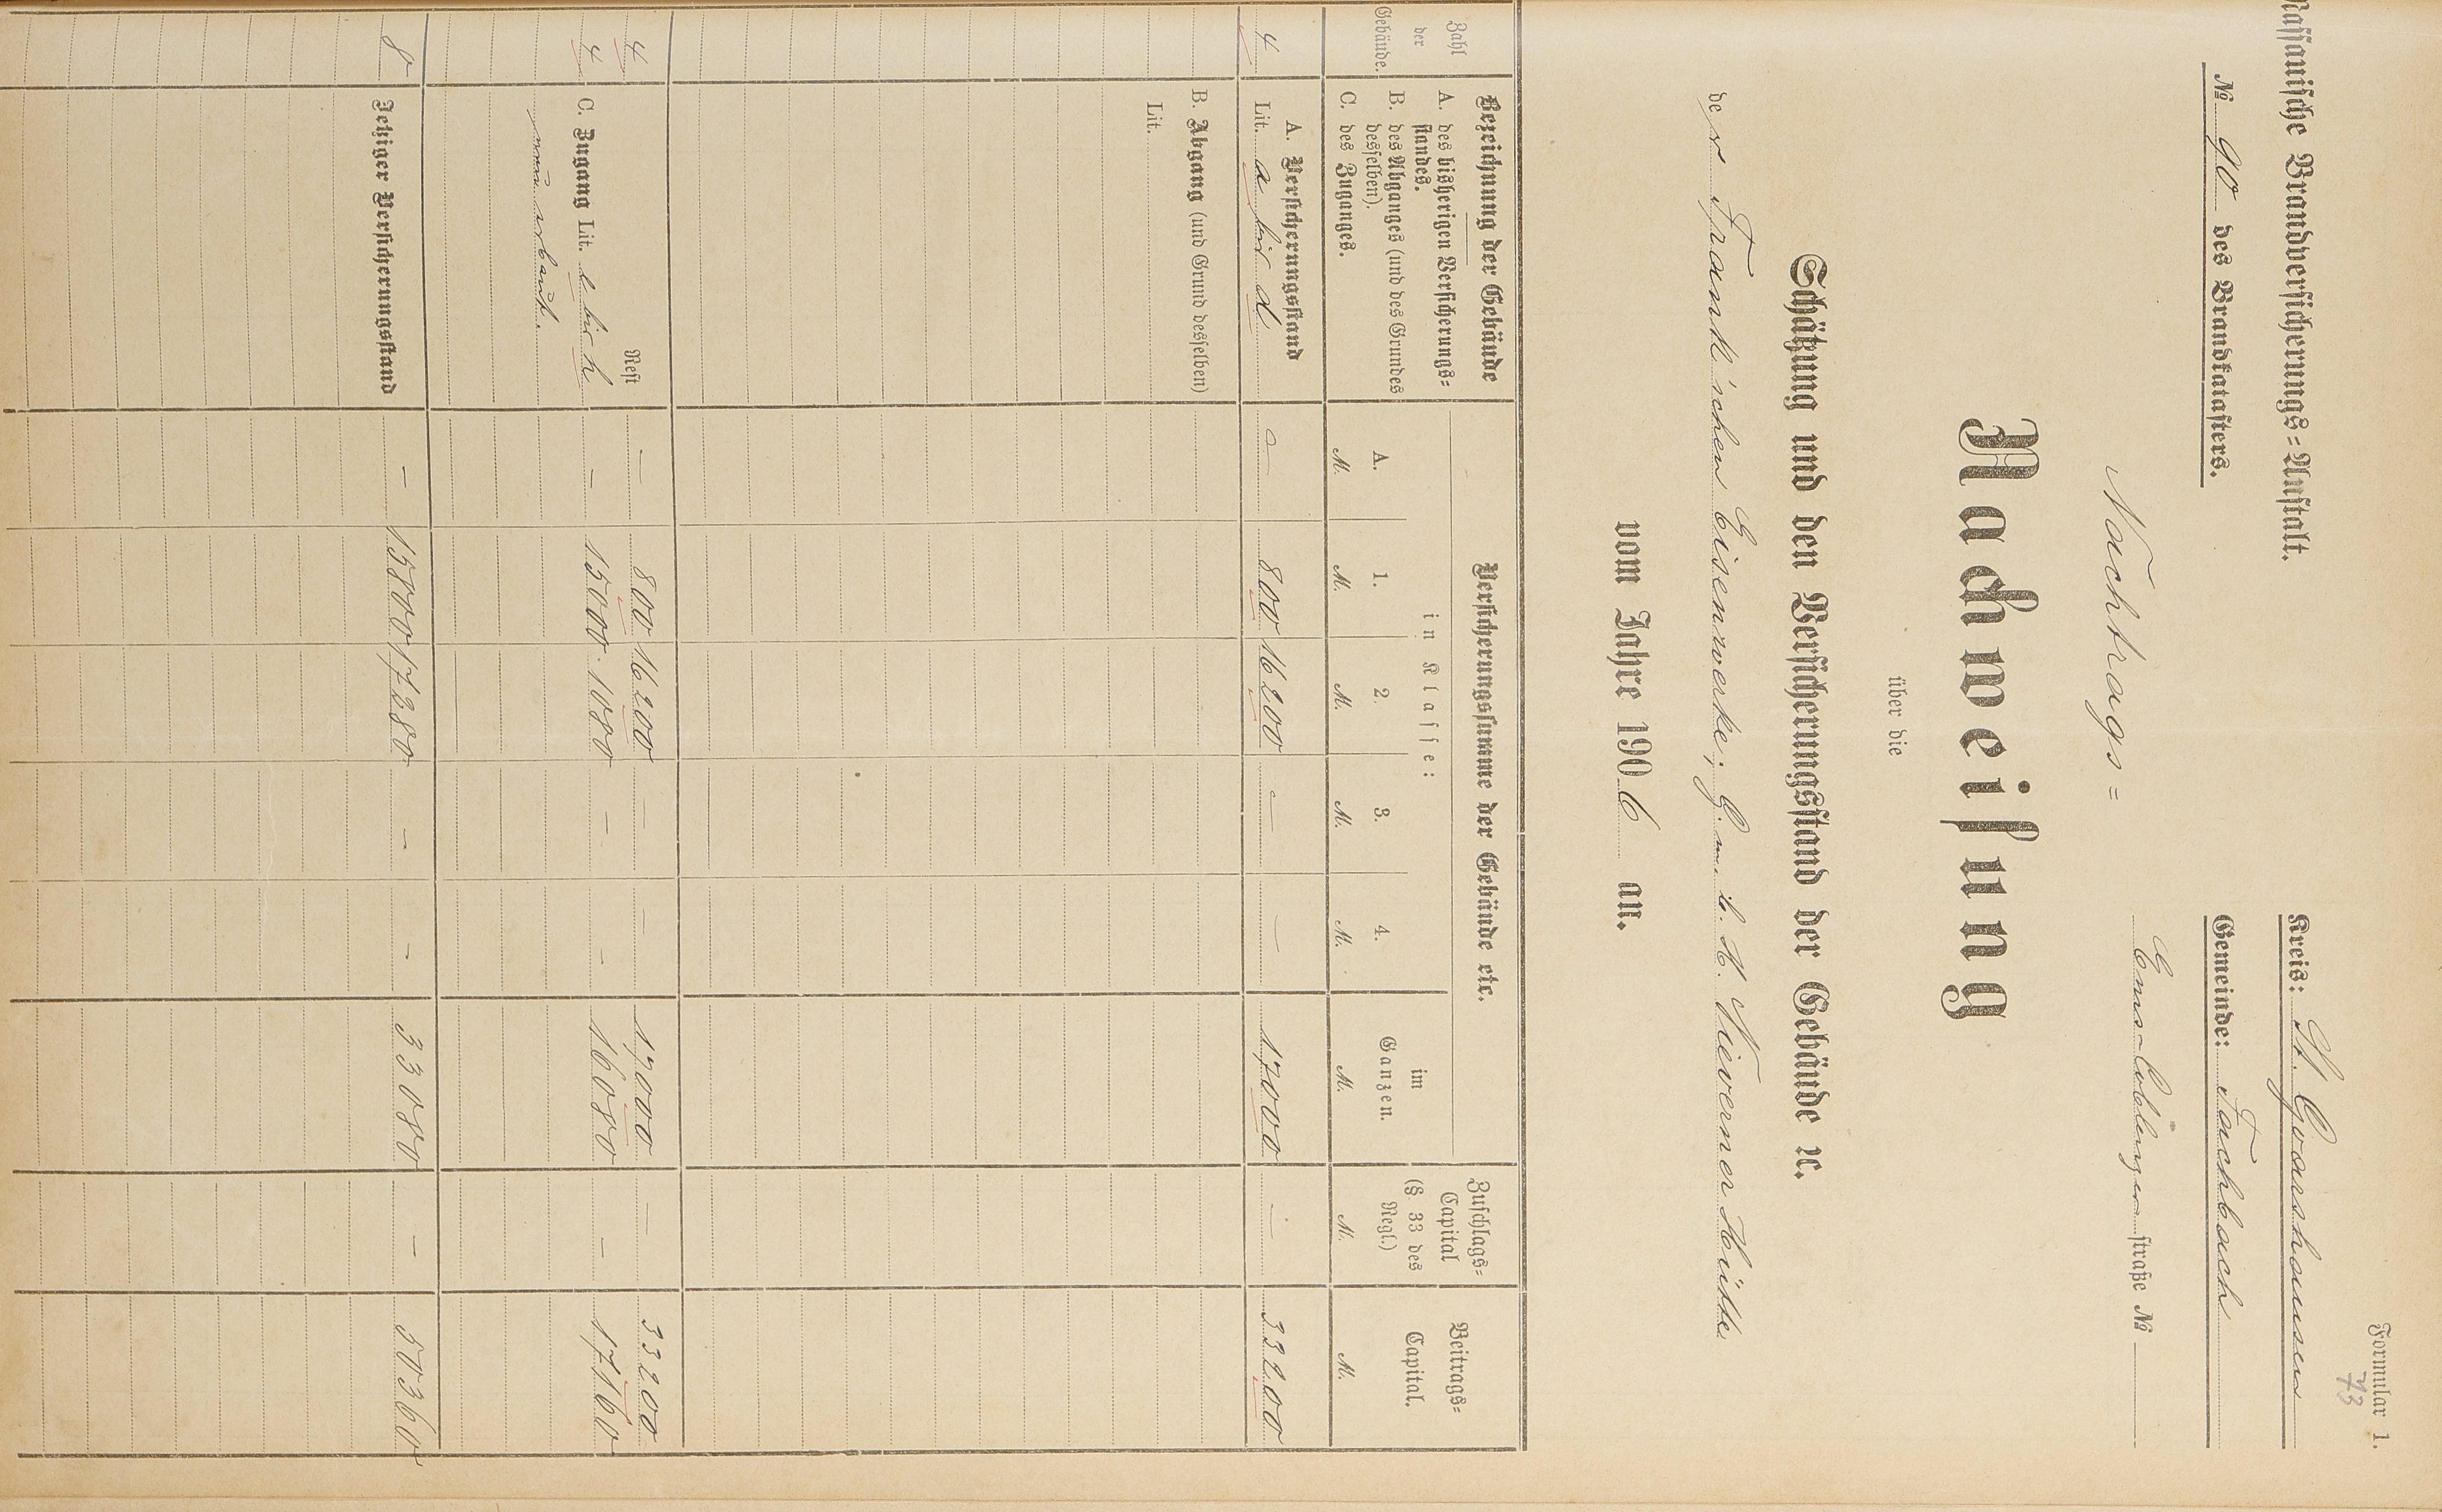 Formular 1.
73
Nassauische Brandversicherungs=Anstalt.
Kreis: St. Goarshausen
№ 90 des Brandkatasters.
Gemeinde: Fachbach
straße №
Nachtrags=
Nachweisung
über die
Schätzung und den Versicherungsstand der Gebäude ꝛc.
der Frank'schen Eisenwerke, G. m. b. H. Nieverner Hütte
vom Jahre 1906 an.
Zahl der Gebäude.
Bezeichnung der Gebäude
A. des bisherigen Versicherungs=
standes.
B. des Abganges (und des Grundes
desselben).
C. des Zuganges.
Versicherungssumme der Gebäude etc.
in Klasse:
A. 1. 2. 3. 4. im Ganzen.
Zuschlags=
Capital
(§ 33 des
Regl.)
Beitrags=
Capital.
M. M. M. M. M. M. M. M.
A. Versicherungsstand
4 Lit. a bis d – 800 16200 – – 17000 – 33200
B. Abgang (und Grund desselben)
Lit.
4 Rest – 800 16200 – – 17000 – 33200
4 C. Zugang Lit. e bis h – 15000 1080 – – 16080 – 17160
neu erbaut.
8 Jetziger Versicherungsstand – 15800 17280 – – 33080 – 50360